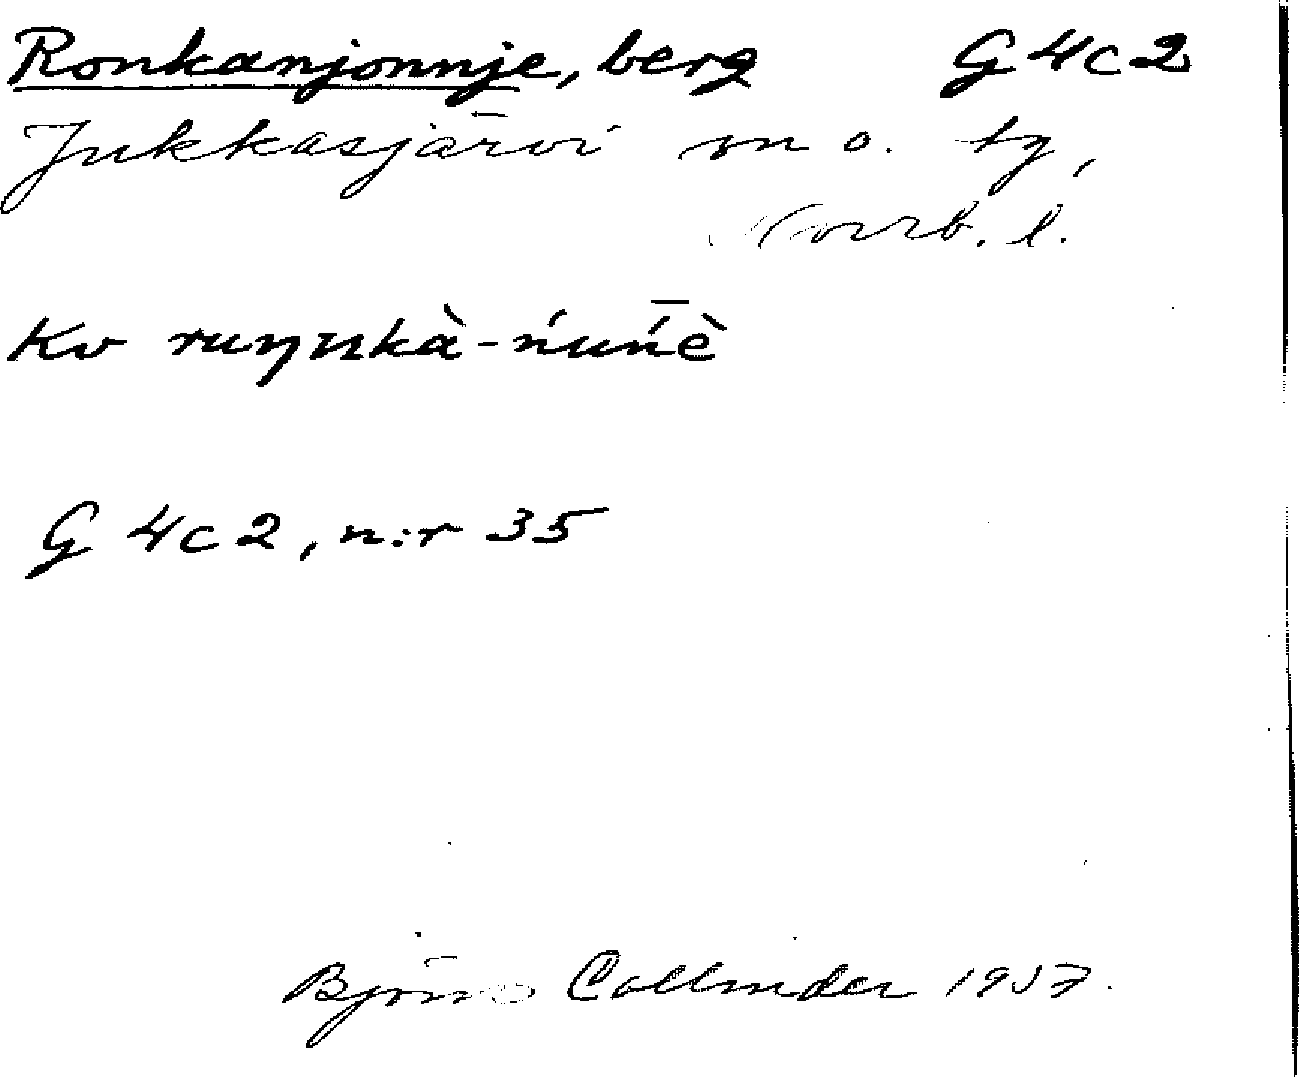 Ronkanjonnje, berg G 4c2
Jukkasjärvi sn o. tg,
Norrb. l.
Kv ruŋŋkà-ńuńɛ̄̀
G 4c2, n:r 35
Björn Collinder 1957.